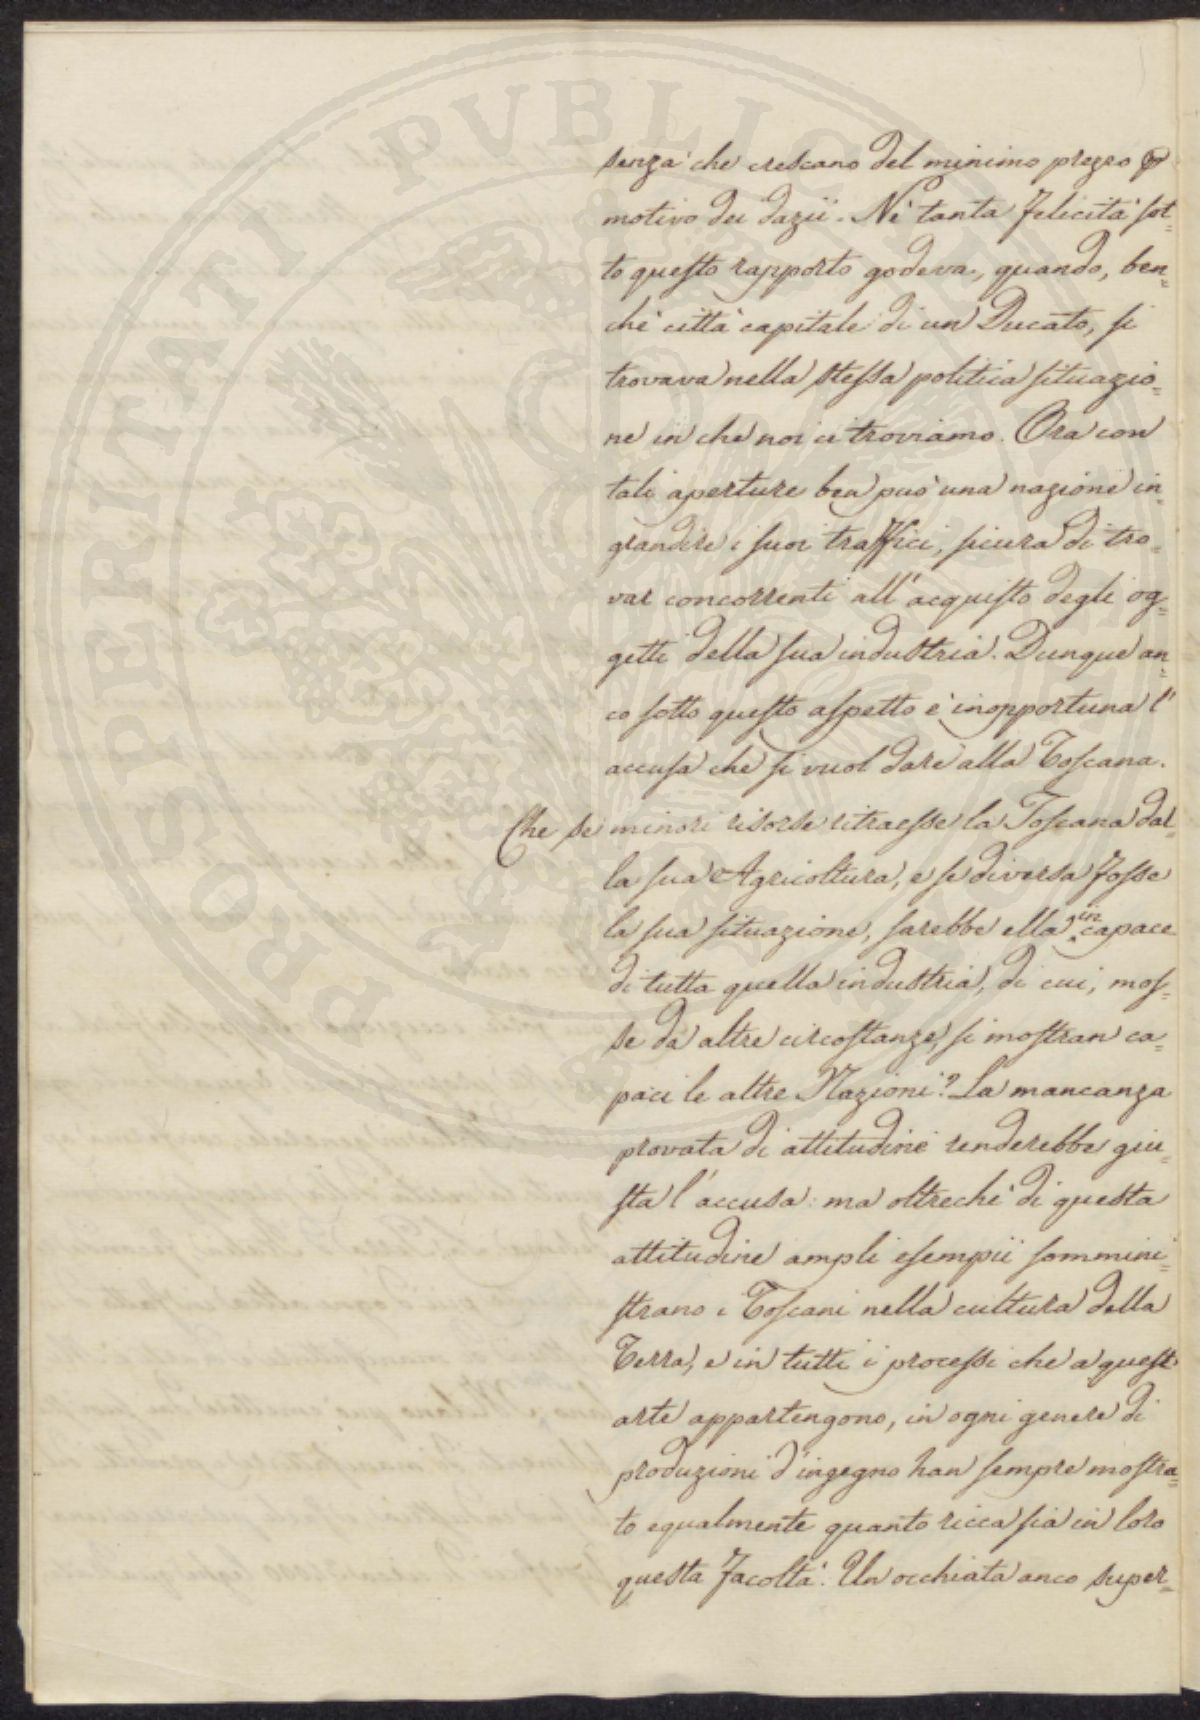 senza che crescano del minimo prezzo per
motivo dei dazii. Nè tanta felicità sot=
to questo rapporto godeva, quando, ben=
chè città capitale di un Ducato, si
trovava nella stessa politica situazio=
ne in che noi ci troviamo. Ora con
tali aperture ben può una nazione in=
grandire i suoi traffici, sicura di tro=
var concorrenti all'acquisto degli og=
getti della sua industria. Dunque an=
co sotto questo aspetto è inopportuna l'
accusa che si vuol dare alla Toscana.
Che se minori risorse ritraesse la Toscana dal=
la sua Agricoltura, e se diversa fosse
la sua situazione, sarebbe ella incapace
di tutta quella industria, di cui, mos=
se da altre circostanze, si mostran ca=
paci le altre Nazioni? La mancanza
provata di attitudine renderebbe giu=
sta l'accusa: ma oltrechè di questa
attitudine ampli esempii sommini=
strano i Toscani nella cultura della
Terra, e in tutti i processi che a quest'
arte appartengono, in ogni genere di
produzioni d'ingegno han sempre mostra=
to egualmente quanto ricca sia in loro
questa facoltà. Un occhiata anco super=
PROSPERITATI PVBLICAE